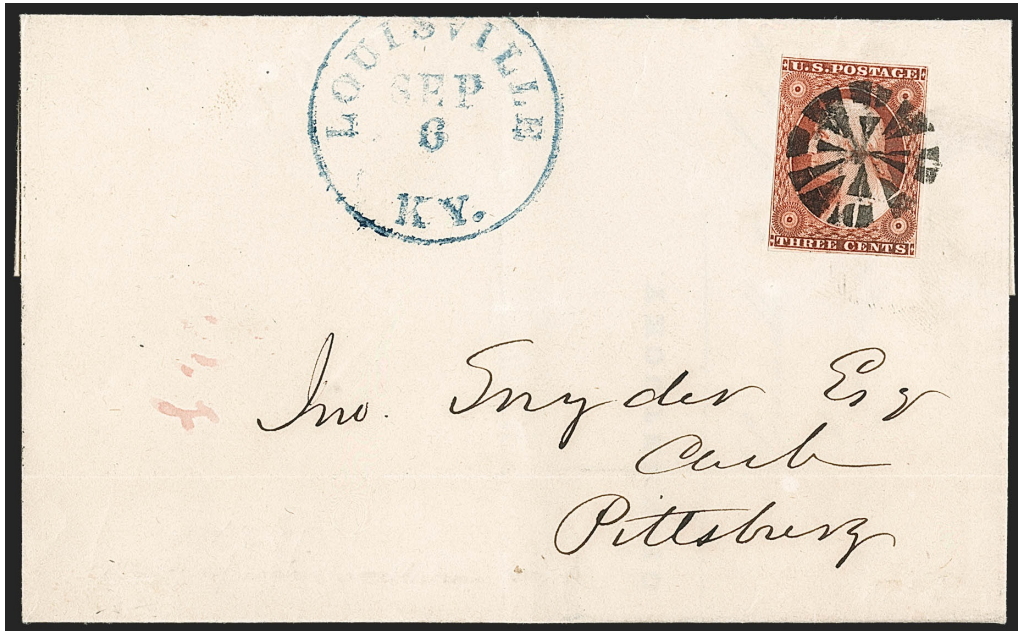 LOUISVILLE
SEP
6
KY.
U.S. POSTAGE
THREE CENTS
Jno. Snyder Esq
Cash
Pittsburg